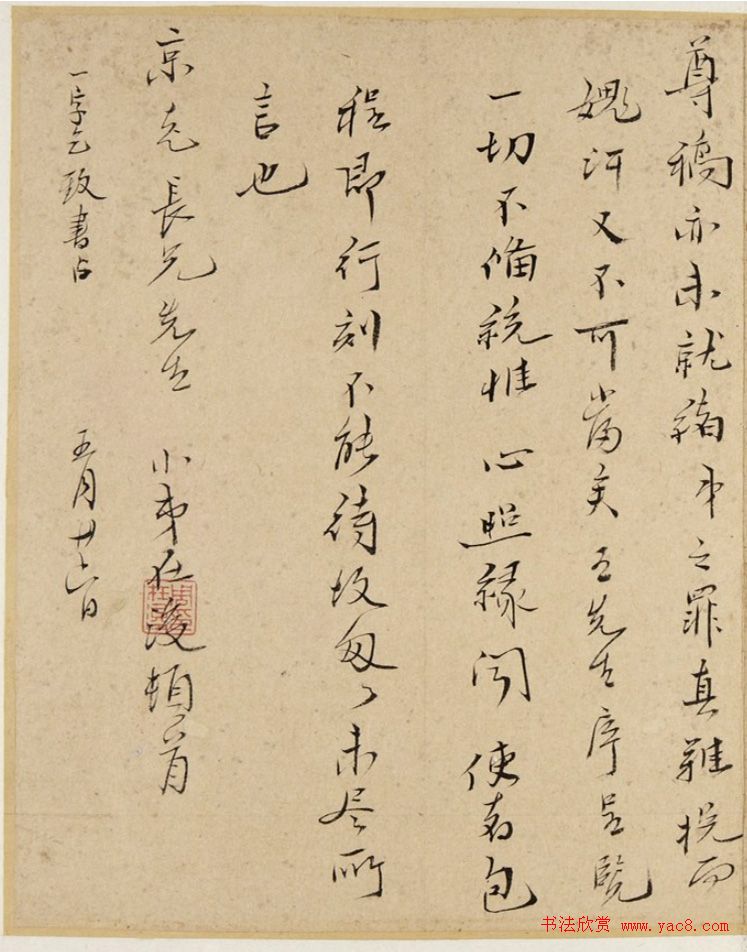 尊稿亦未就緒弟之罪真難挩而
媿汗又不可當矣五先生序呈覽
一切不備統惟 心照緣聞 使者包
程即行刻不能待故匆匆未尽所
言也
京兄長兄先生 小弟在浚頓首
一字乞致書占 五月廿六日
书法欣赏 www.yac8.com